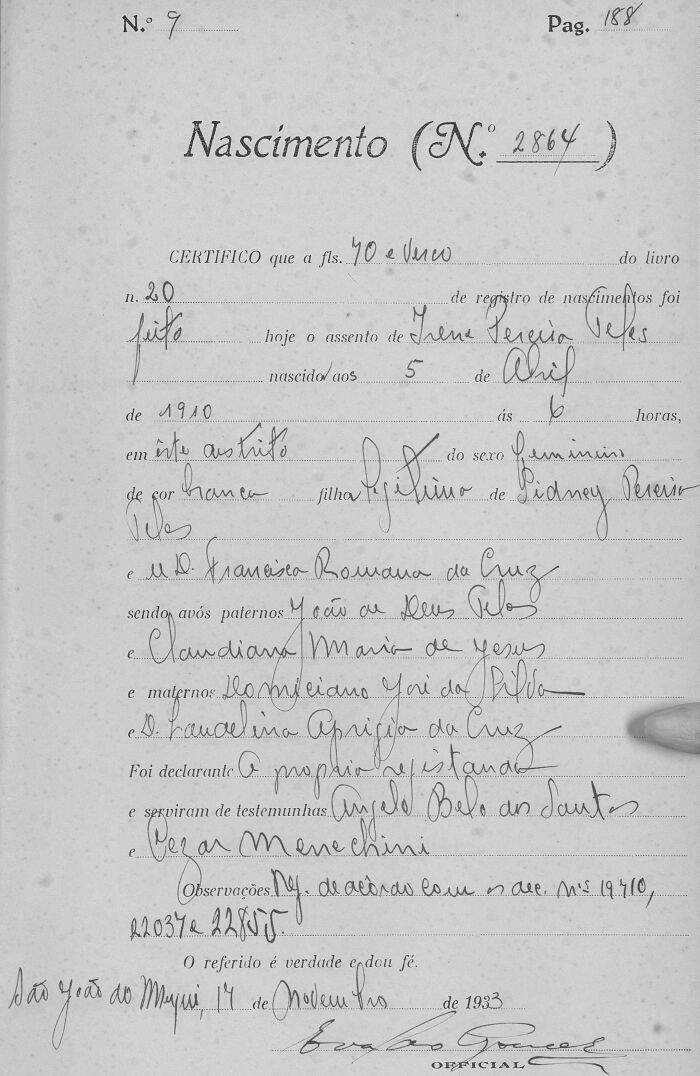 N.º 9 Pag. 188
Nascimento (N.º 2864)
CERTIFICO que a fls. 70 e verso do livro
n. 20 de registro de nascimentos foi
feito hoje o assento de Irene Pereira Teles
nascido aos 5 de Abril
de 1910 ás 6 horas,
em êste distrito do sexo feminino
de cor branca filha legitima de Sidney Pereira
Teles
e D. Francisca Romana da Cruz
sendo avós paternos João de Deus Teles
e Claudiana Maria de Jesus
e maternos Domiciano José da Silva
e D. Laudelina Aprigia da Cruz
Foi declarante A propria registanda
e serviram de testemunhas Angelo Belo dos Santos
e Cezar Menechini
Observações Reg. de acôrdo com os dec. nºs 19710,
22037 e 22855.
O referido é verdade e dou fé.
São João do Meriti, 17 de Novembro de 1933
Gomes
OFFICIAL